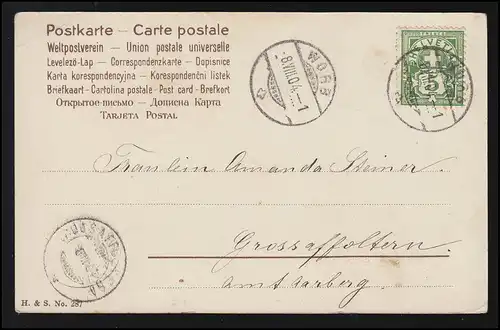 Postkarte — Carte postale
Weltpostverein — Union postale universelle
Levelező-Lap — Correspondenzkarte — Dopisnice
Karta korespondencyjna — Korespondenční lístek
Briefkaart - Cartolina postale - Post card - Brefkort
Открытое письмо — Дописна Карта
TARJETA POSTAL
WORB
-8.VIII.04.-1
HELVETIA
5
Fräulein Amanda Steiner
Grossaffoltern
Amt Aarberg
H. & S. No. 287